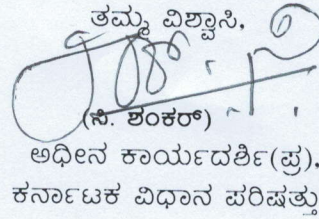 ತಮ್ಮ ವಿಶ್ವಾಸಿ,
(ಸಿ. ಶಂಕರ್)
ಅಧೀನ ಕಾರ್ಯದರ್ಶಿ(ಪ್ರ),
ಕರ್ನಾಟಕ ವಿಧಾನ ಪರಿಷತ್ತು